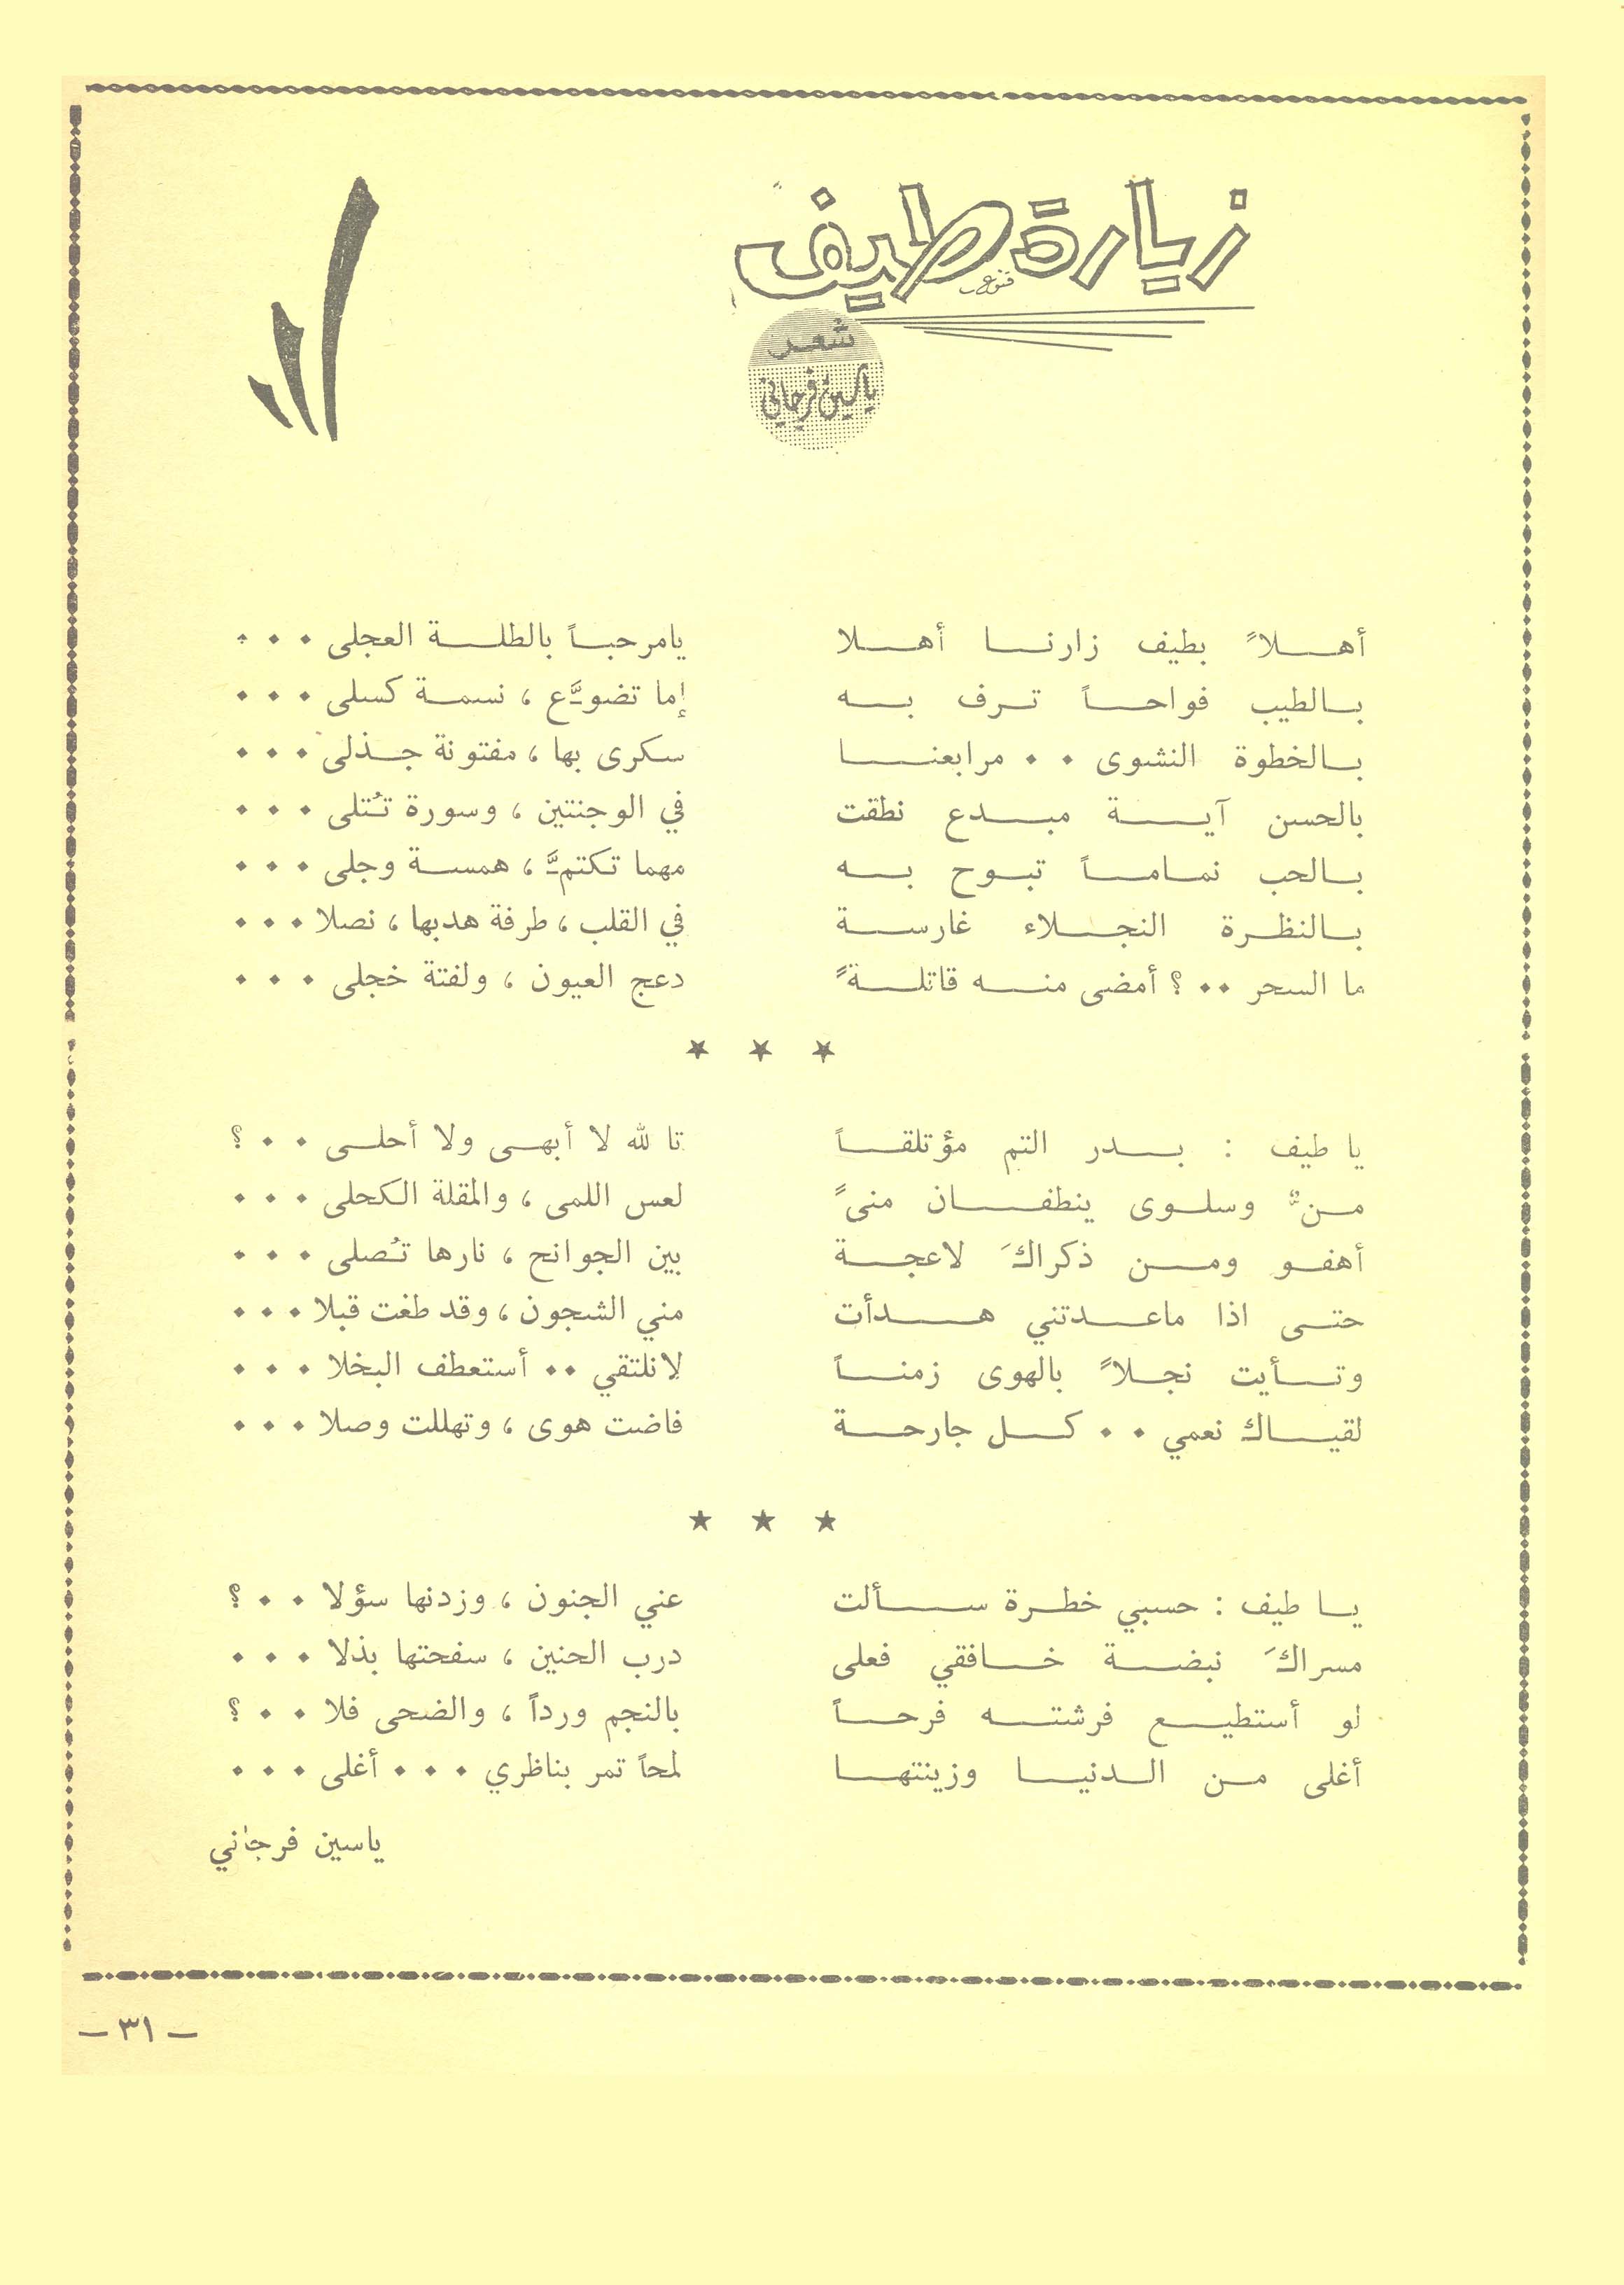 زيارة طيف
شعر
ياسين فرجاني
أهلاً بطيف زارنا أهلا يامرحباً بالطلة العجلى . . .
بالطيب فواحاً ترف به إما تضوَّع ، نسمة كسلى . . .
بالخطوة النشوى . . مرابعنا سكرى بها ، مفتونة جذلى . . .
بالحسن آية مبدع نطقت في الوجنتين ، وسورة تُتلى . . .
بالحب نماماً تبوح به مهما تكتمَّ ، همسة وجلى . . .
بالنظرة النجلاء غارسة في القلب ، طرفة هدبها ، نصلا . . .
ما السحر . . ؟ أمضى منه قاتلةً دعج العيون ، ولفتة خجلى . . .
★ ★ ★
يا طيف : بدر التم مؤتلقاً تا لله لا أبهى ولا أحلى . . ؟
منٌّ وسلوى ينطفان منىً لعس اللمى ، والمقلة الكحلى . . .
أهفو ومن ذكراكَ لاعجة بين الجوانح ، نارها تُصلى . . .
حتى اذا ماعدتني هدأت مني الشجون ، وقد طغت قبلا . . .
وتأيت نجلاً بالهوى زمناً لانلتقي . . أستعطف البخلا . . .
لقياك نعمي . . كل جارحة فاضت هوى ، وتهللت وصلا . . .
★ ★ ★
يا طيف : حسبي خطرة سألت عني الجنون ، وزدنها سؤلا . . ؟
مسراكَ نبضة خافقي فعلى درب الحنين ، سفحتها بذلا . . .
لو أستطيع فرشته فرحاً بالنجم ورداً ، والضحى فلا . . ؟
أغلى من الدنيا وزينتها لمحاً تمر بناظري . . . أغلى . . .
ياسين فرجاني
– ٣١ –